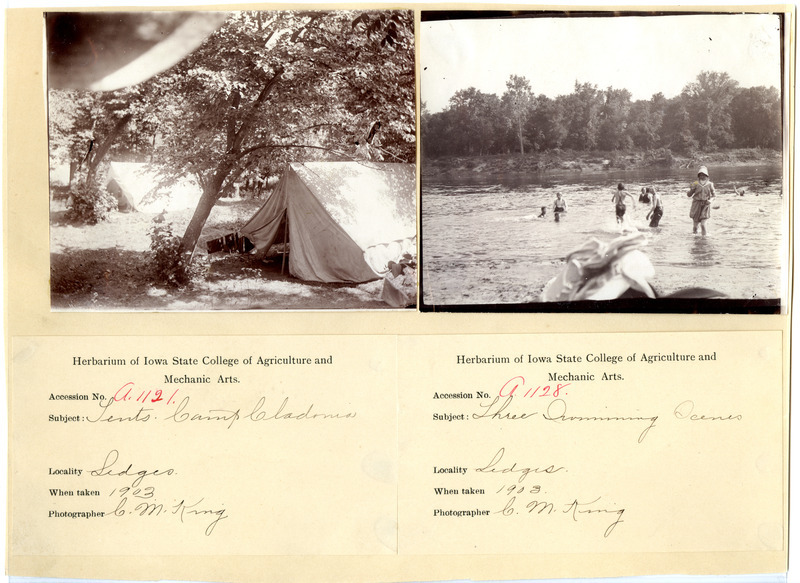 Herbarium of Iowa State College of Agriculture and
Mechanic Arts.
Accession No. A. 1121.
Subject: Tents. Camp Cladonia
Locality Ledges.
When taken 1903
Photographer C. M. King
Herbarium of Iowa State College of Agriculture and
Mechanic Arts.
Accession No. A 1128.
Subject: Three Swimming Scenes
Locality Ledges.
When taken 1903.
Photographer C. M. King